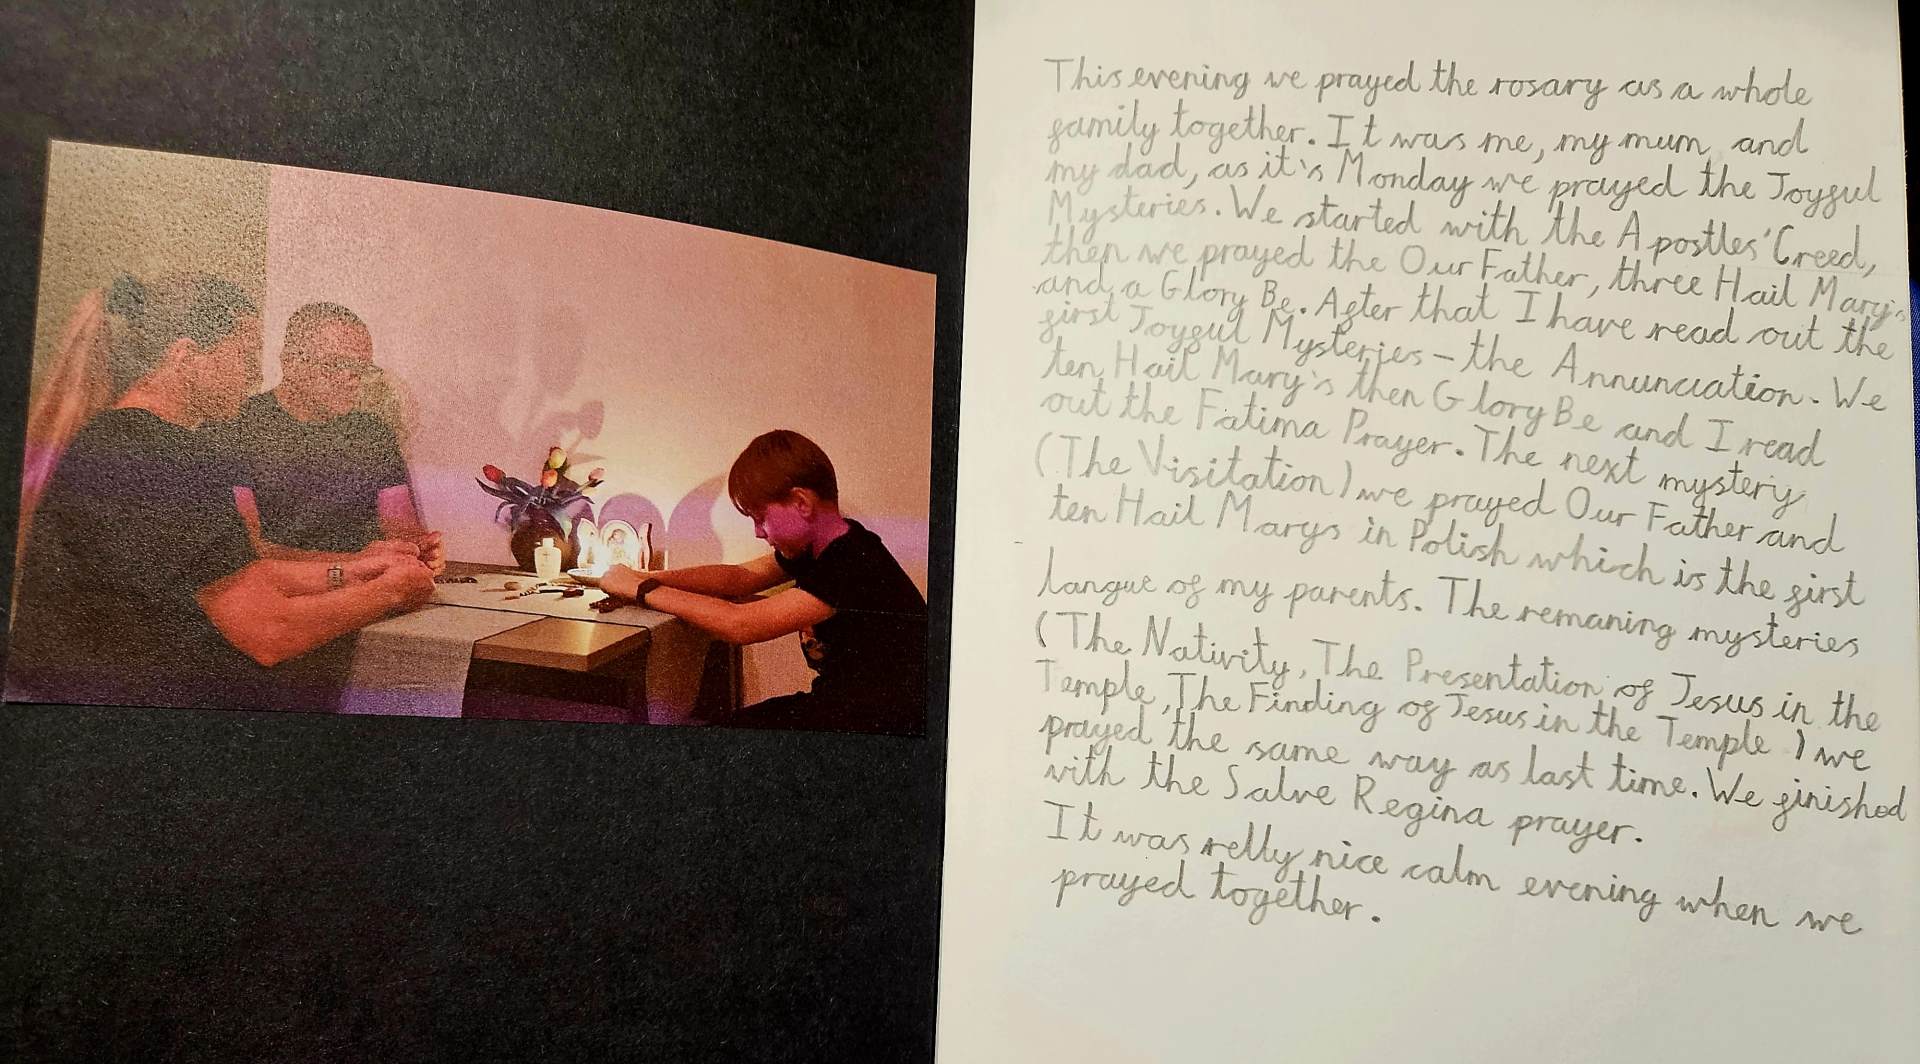 This evening we prayed the rosary as a whole
family together. It was me, my mum, and
my dad, as it's Monday we prayed the Joyful
Mysteries. We started with the Apostles' Creed,
then we prayed the Our Father, three Hail Mary's
and a Glory Be. After that I have read out the
first Joyful Mysteries – the Annunciation. We
ten Hail Mary's then Glory Be and I read
out the Fatima Prayer. The next mystery
(The Visitation) we prayed Our Father and
ten Hail Marys in Polish which is the first
langue of my parents. The remaning mysteries
(The Nativity, The Presentation of Jesus in the
Temple, The Finding of Jesus in the Temple) we
prayed the same way as last time. We finished
with the Salve Regina prayer.
It was relly nice calm evening when we
prayed together.